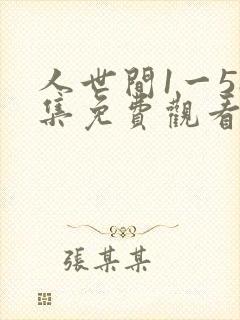 人世間1一5
集免費觀看
張某某